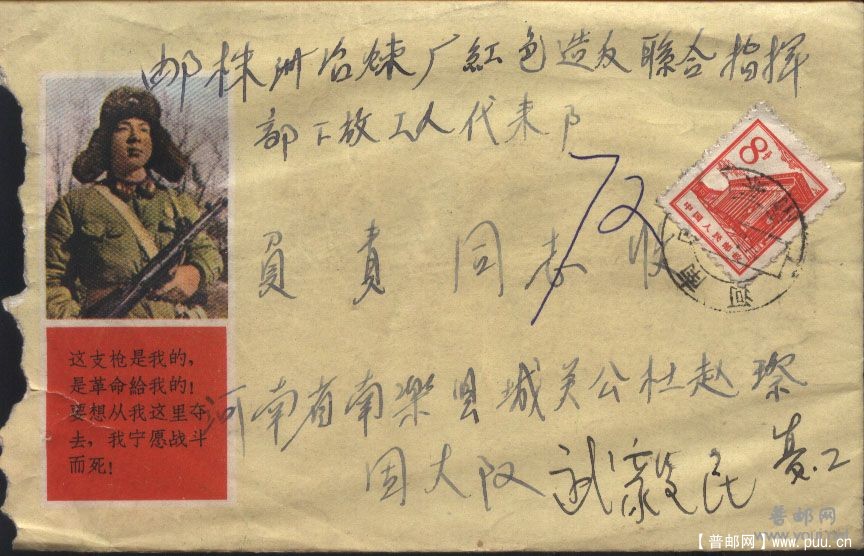 邮株洲冶煉厂紅色造反聯合指挥
部下放工人代表
負責同志收
反
8分
中国人民邮政
河南
这支枪是我的，
是革命給我的！
要想从我这里夺
去，我宁愿战斗
而死！
河南省南樂县城关公社赵
固大队武毅民
普邮网
【普邮网】www.puu.cn